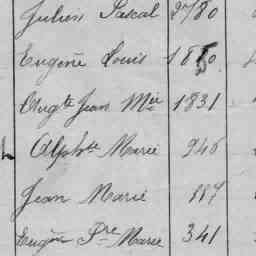 Julien Pascal 2780
Eugène Louis
Augte Jean Mie 1831
Alphte Marie 946
Jean Marie 887
Eugène Pre Marie 341